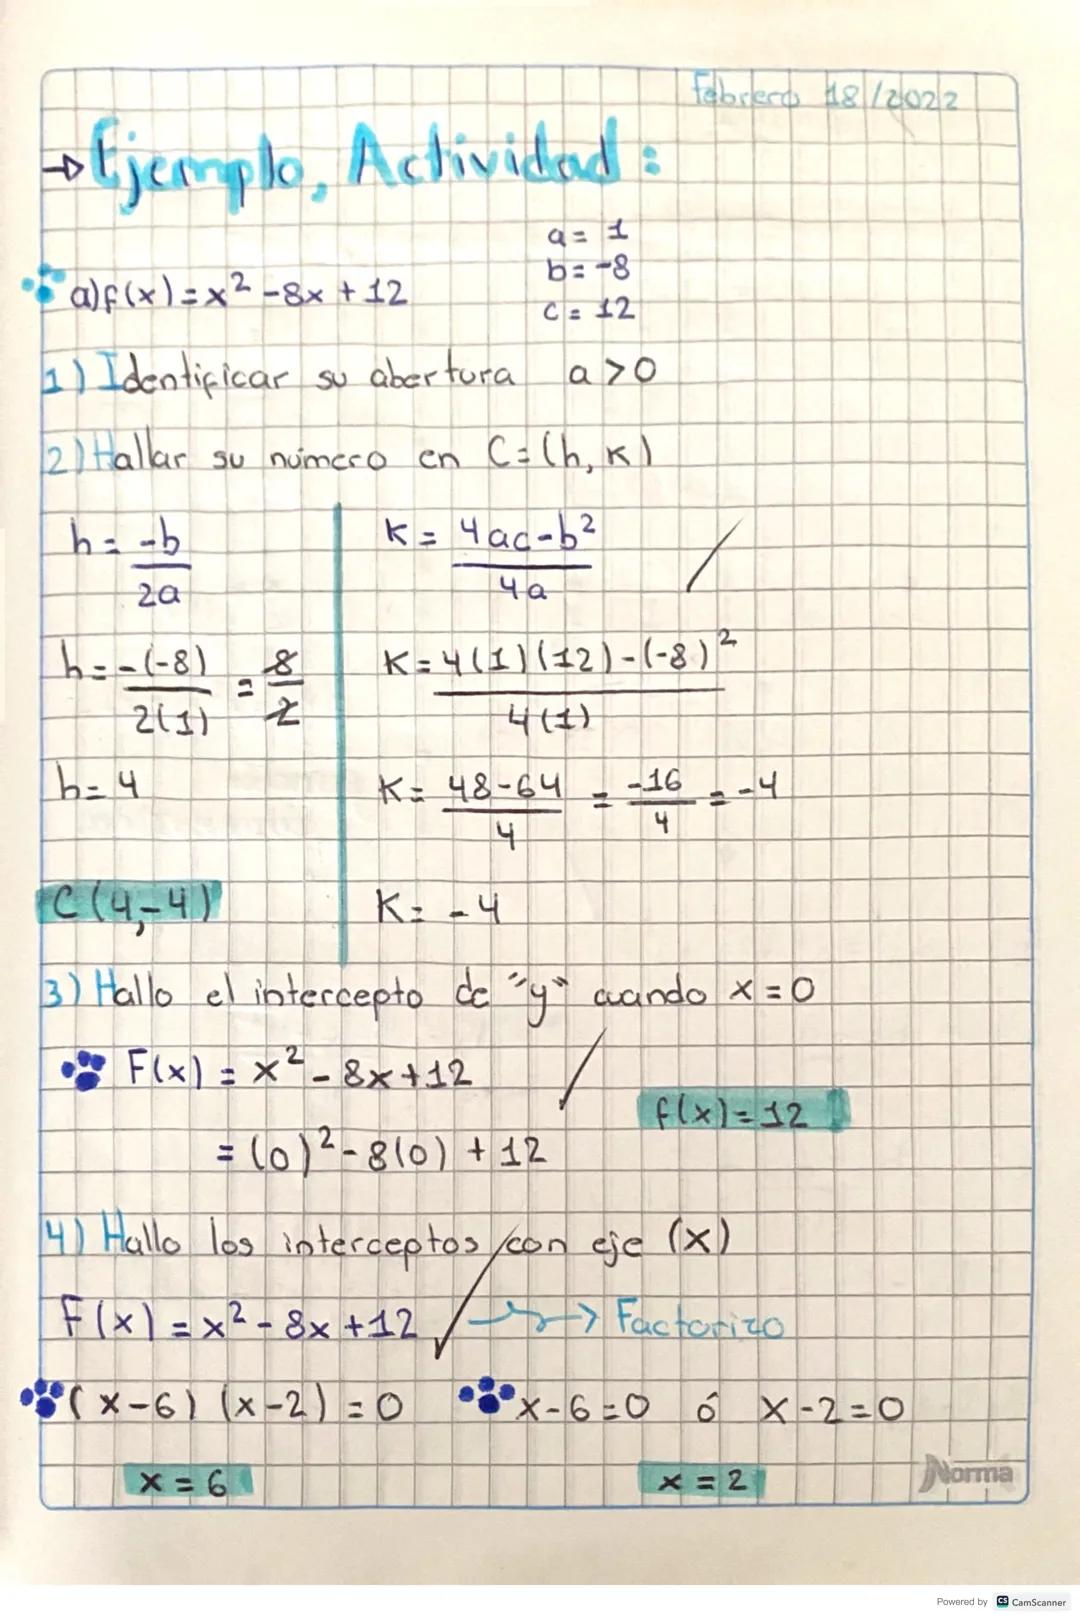 Febrero 18/2022
→ Ejemplo, Actividad:
a = 1
b = -8
a) f(x) = x² - 8x + 12
c = 12
1) Identificar su abertura a > 0
2) Hallar su número en C = (h, K)
h = -b / 2a
K = 4ac - b² / 4a
h = -(-8) / 2(1) = 8 / 2
K = 4(1)(12) - (-8)² / 4(1)
h = 4
K = 48 - 64 / 4 = -16 / 4 = -4
C (4, -4)
K = -4
3) Hallo el intercepto de "y" cuando x = 0
F(x) = x² - 8x + 12
f(x) = 12
= (0)² - 8(0) + 12
4) Hallo los interceptos con eje (x)
F(x) = x² - 8x + 12 → Factorizo
(x - 6) (x - 2) = 0 x - 6 = 0 ó x - 2 = 0
x = 6 x = 2
Norma
Powered by CS CamScanner